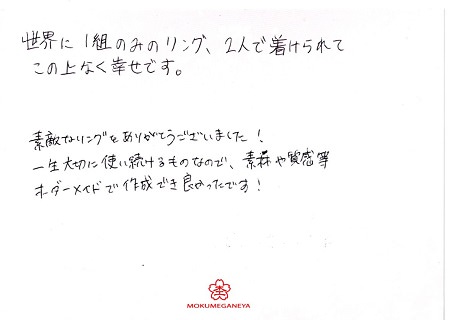 世界に1組のみのリング、2人で着けられて
この上なく幸せです。
素敵なリングをありがとうございました!
一生大切に使い続けるものなので、素材や質感等
オーダーメイドで作成でき良かったです!
MOKUMEGANEYA